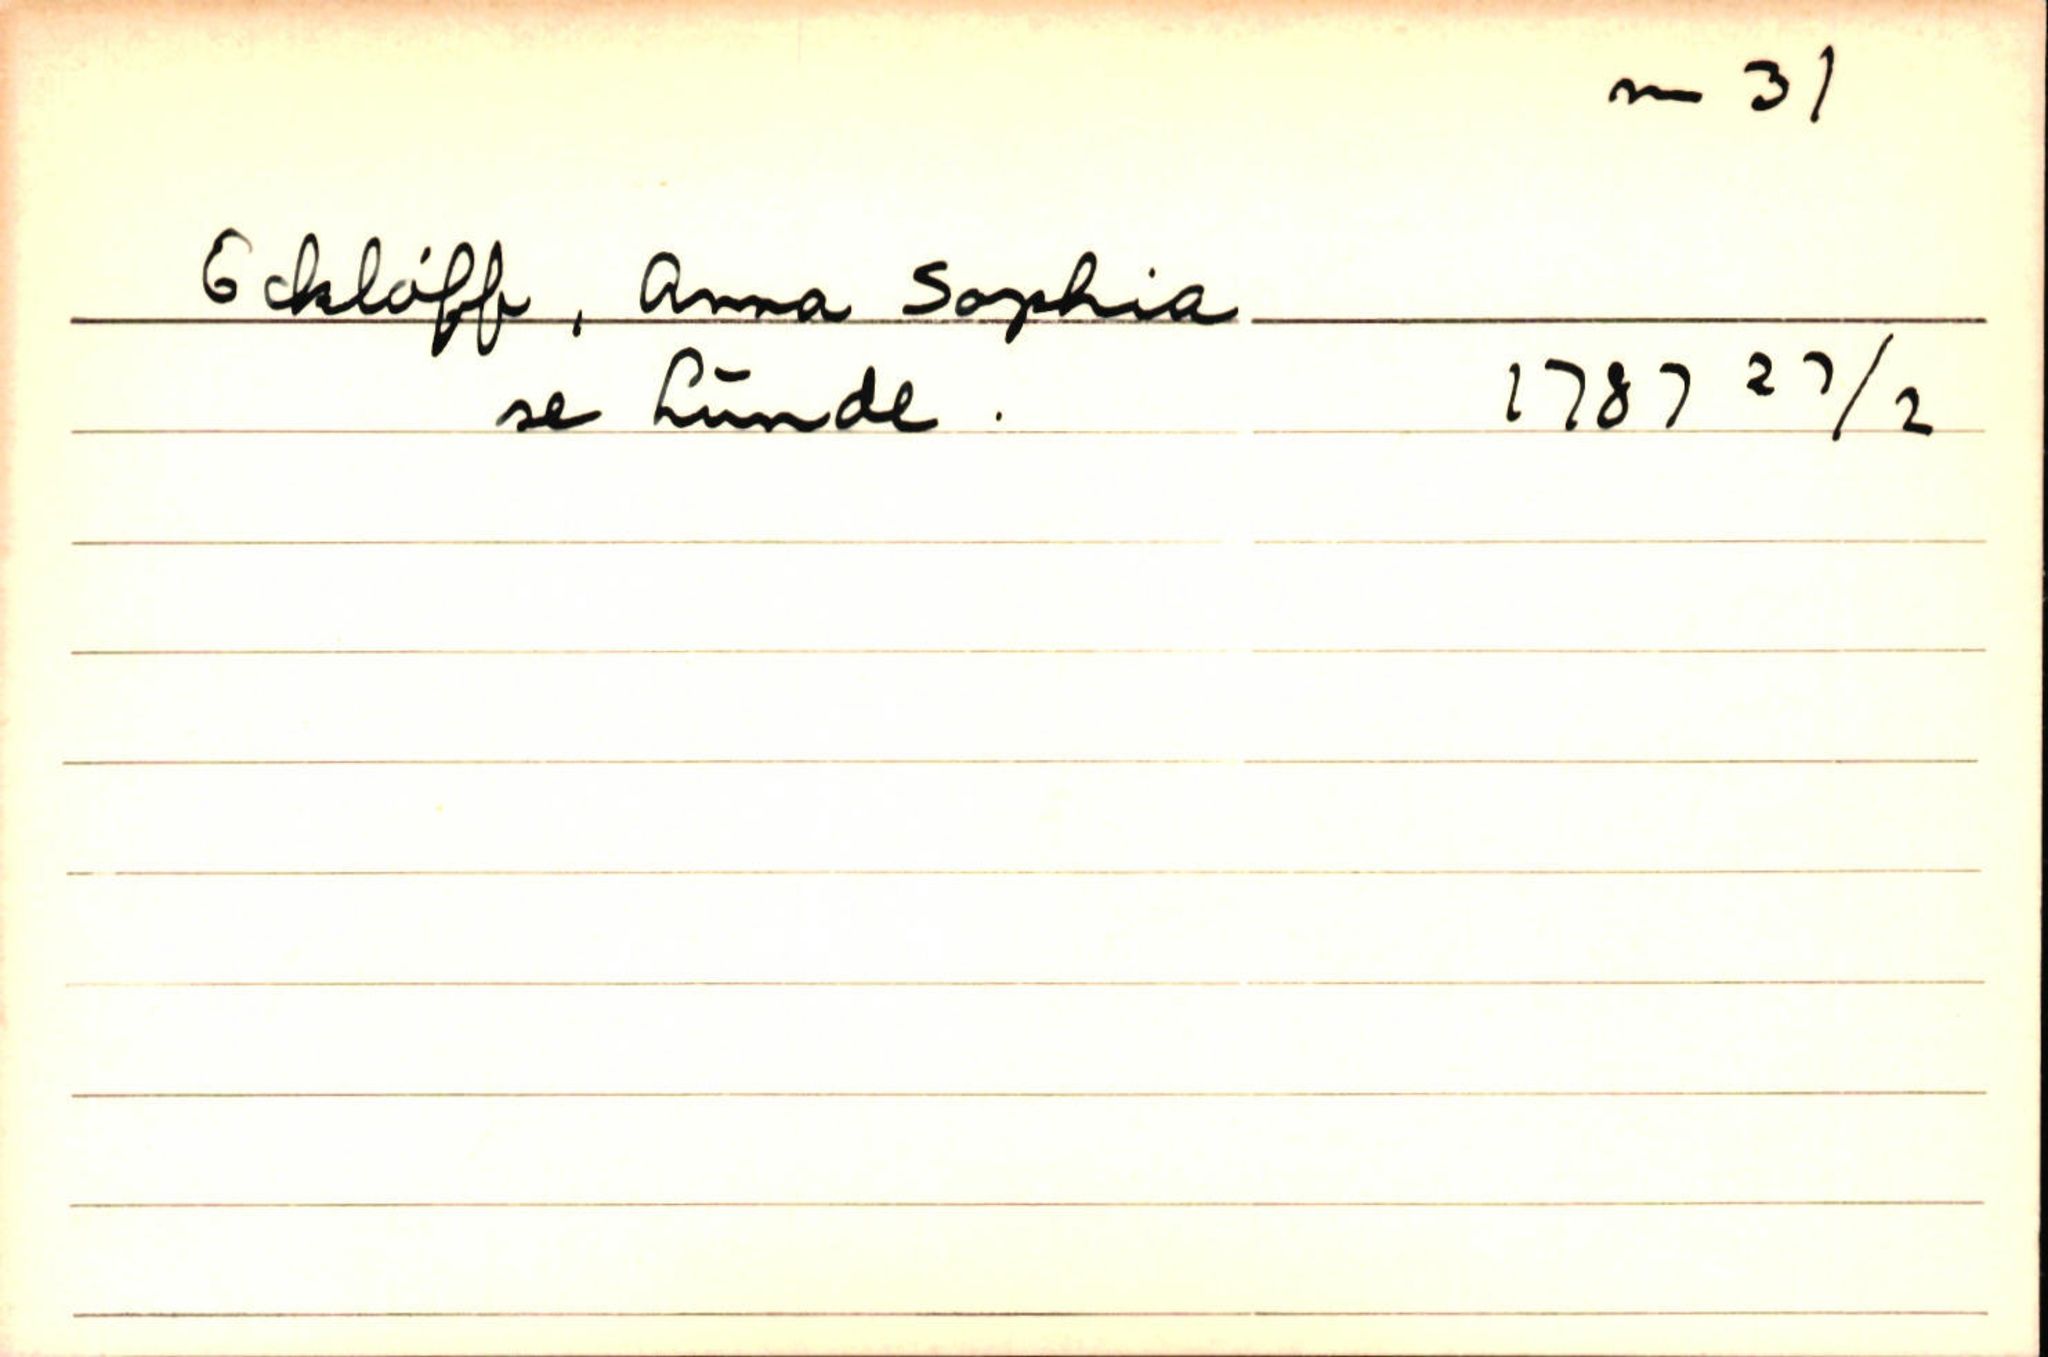 m 31
Ecklöff, Anna Sophia
se Lunde. 1787 27/2